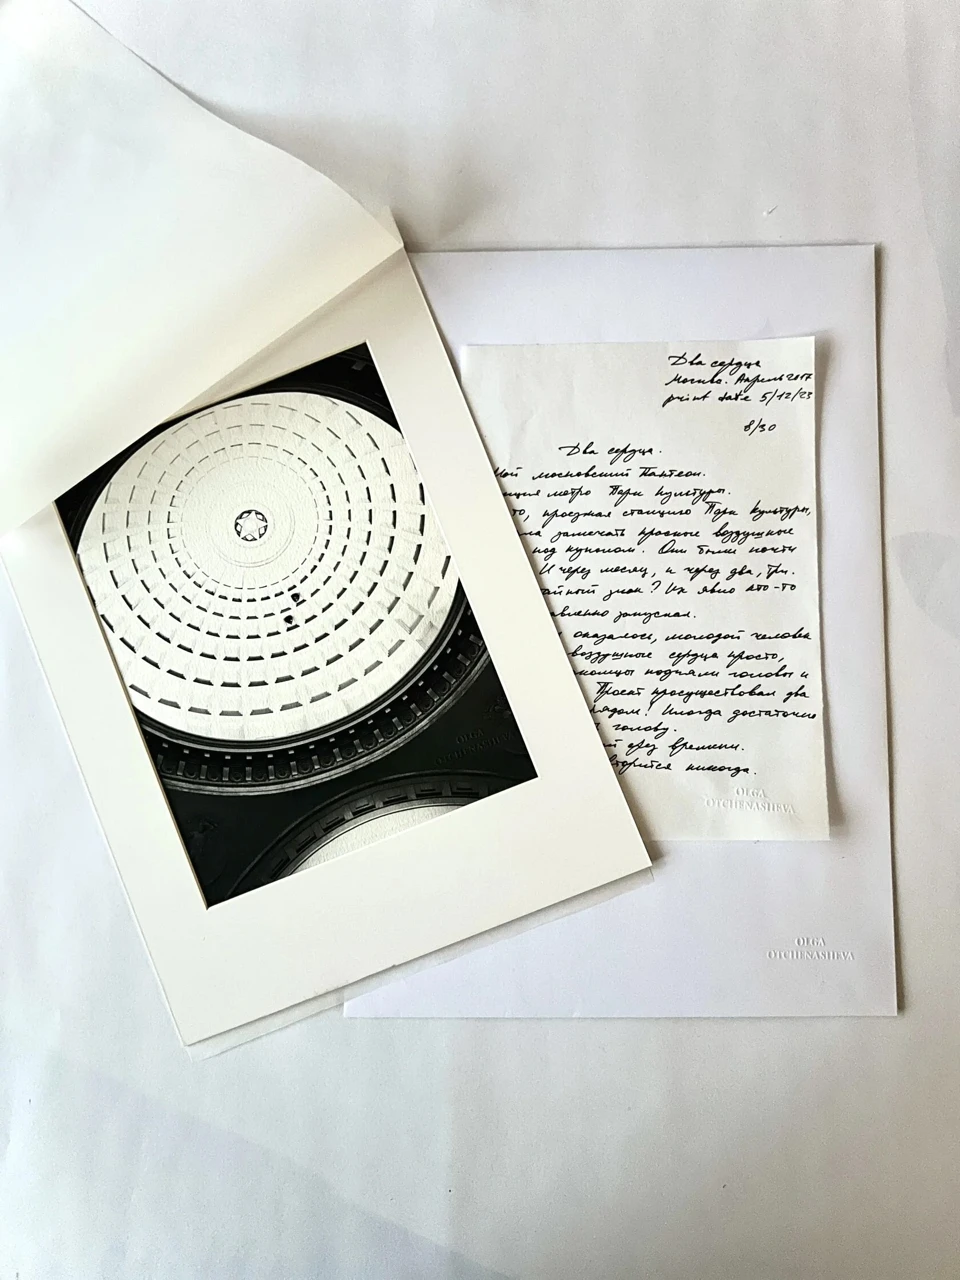 Два сердца
Москва. Апрель 2017
print date 5/12/23
8/30
Два сердца.
Мой московский Пантеон.
нция метро Парк Культуры.
то, проезжая станцию Парк Культуры,
ла замечать красные воздушные
под куполом. Они были почти
И через месяц, и через два, три.
айный знак? Их явно кто-то
авленно запускал.
оказалось, молодой человек
воздушные сердца просто,
комцы подняли головы и
Проект просуществовал два
рядом! Иногда достаточно
голову.
й дух времени.
вторится никогда.
OLGA
OTCHENASHEVA
OLGA
OTCHENASHEVA
OLGA
OTCHENASHEVA